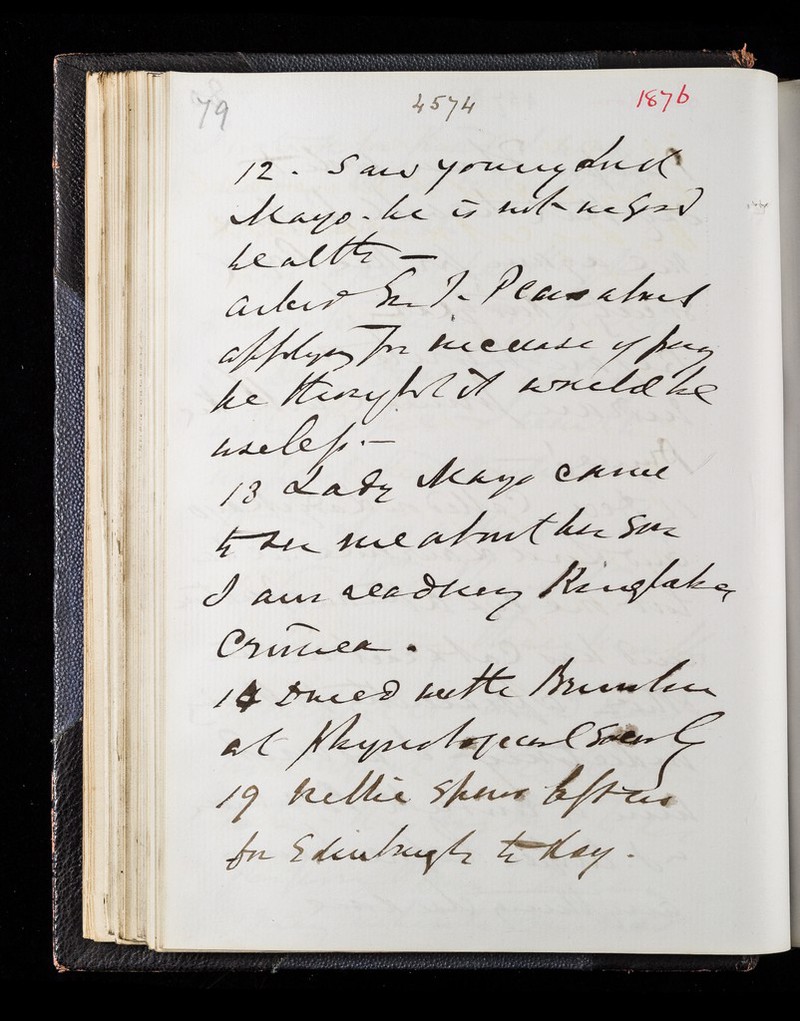 79
4574
1876
12. Saw young Lord
Mayo - he is not in good
health —
asked Sir J. about
applying for increase of pay
he thought it would be
useless. —
13 Lady Mayo came
to see me about her son
I am reading Kinglake's
Crimea.
14 Dined with Brunton
at Physiological Society
19 Nellie left us
for Edinburgh to day.